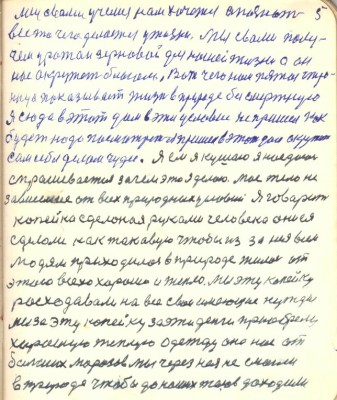 5
Мы с вами учение нам хочется
все то чего делается у жизни. Мы с вами полу-
чаем урожай зерновой для нашей жизни а он
нас окружает Вот чего нам пятая стра-
ница показывает жизнь в природе бессмертную
Я сюда в этот дом в эти условия не пришел Как
будет надо посмотреть я пришел в этот дом
сам себя делаю чудо. Я ем я кушаю я наедаюсь
спрашивается зачем это я делаю. Мое тело не
зависимое от всех природных условий Я говорит
копейка сделоная руками человека они ее
сделали как таковую чтобы из за нея всем
людям приходилося в природе жить от
этого всего хорошо и тепло. Мы эту копейку
расходовали на все свои имеющие нужды
мы за эту копейку за эти деньги приобрели
хорошую теплую одежду оно нас от
больших морозов мы через нея не смогли
в природе чтобы до наших телов доходили